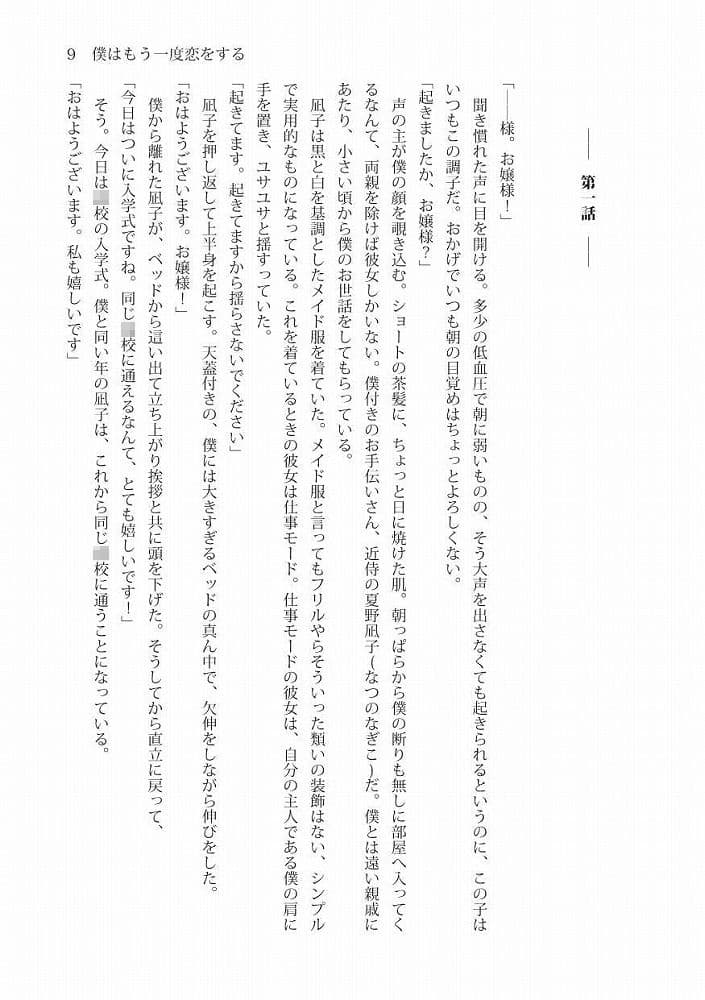 9 僕はもう一度恋をする
―― 第一話 ――
「――様。お嬢様！」
　聞き慣れた声に目を開ける。多少の低血圧で朝に弱いものの、そう大声を出さなくても起きられるというのに、この子は
いつもこの調子だ。おかげでいつも朝の目覚めはちょっとよろしくない。
「起きましたか、お嬢様？」
　声の主が僕の顔を覗き込む。ショートの茶髪に、ちょっと日に焼けた肌。朝っぱらから僕の断りも無しに部屋へ入ってく
るなんて、両親を除けば彼女しかいない。僕付きのお手伝いさん、近侍の夏野凪子(なつのなぎこ)だ。僕とは遠い親戚に
あたり、小さい頃から僕のお世話をしてもらっている。
　凪子は黒と白を基調としたメイド服を着ていた。メイド服と言ってもフリルやらそういった類いの装飾はない、シンプル
で実用的なものになっている。これを着ているときの彼女は仕事モード。仕事モードの彼女は、自分の主人である僕の肩に
手を置き、ユサユサと揺すっていた。
「起きてます。起きてますから揺らさないでください」
　凪子を押し返して上半身を起こす。天蓋付きの、僕には大きすぎるベッドの真ん中で、欠伸をしながら伸びをした。
「おはようございます。お嬢様！」
　僕から離れた凪子が、ベッドから這い出て立ち上がり挨拶と共に頭を下げた。そうしてから直立に戻って、
「今日はついに入学式ですね。同じ校に通えるなんて、とても嬉しいです！」
　そう。今日は校の入学式。僕と同い年の凪子は、これから同じ校に通うことになっている。
「おはようございます。私も嬉しいです」